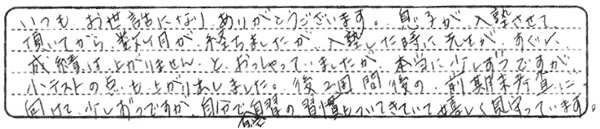 いつも お世話になり ありがとうございます。息子が 入塾させて
頂いてから 数ヶ月が 経ちましたが、入塾した時に 先生が すぐに
成績は 上がりません と おっしゃっていましたが、本当に 少しずつですが
小テストの点も上がりました。後2週間後の 前期末考査に
向けて 少しずつですが 自分で自習の習慣もついてきていて 嬉しく見守っています。